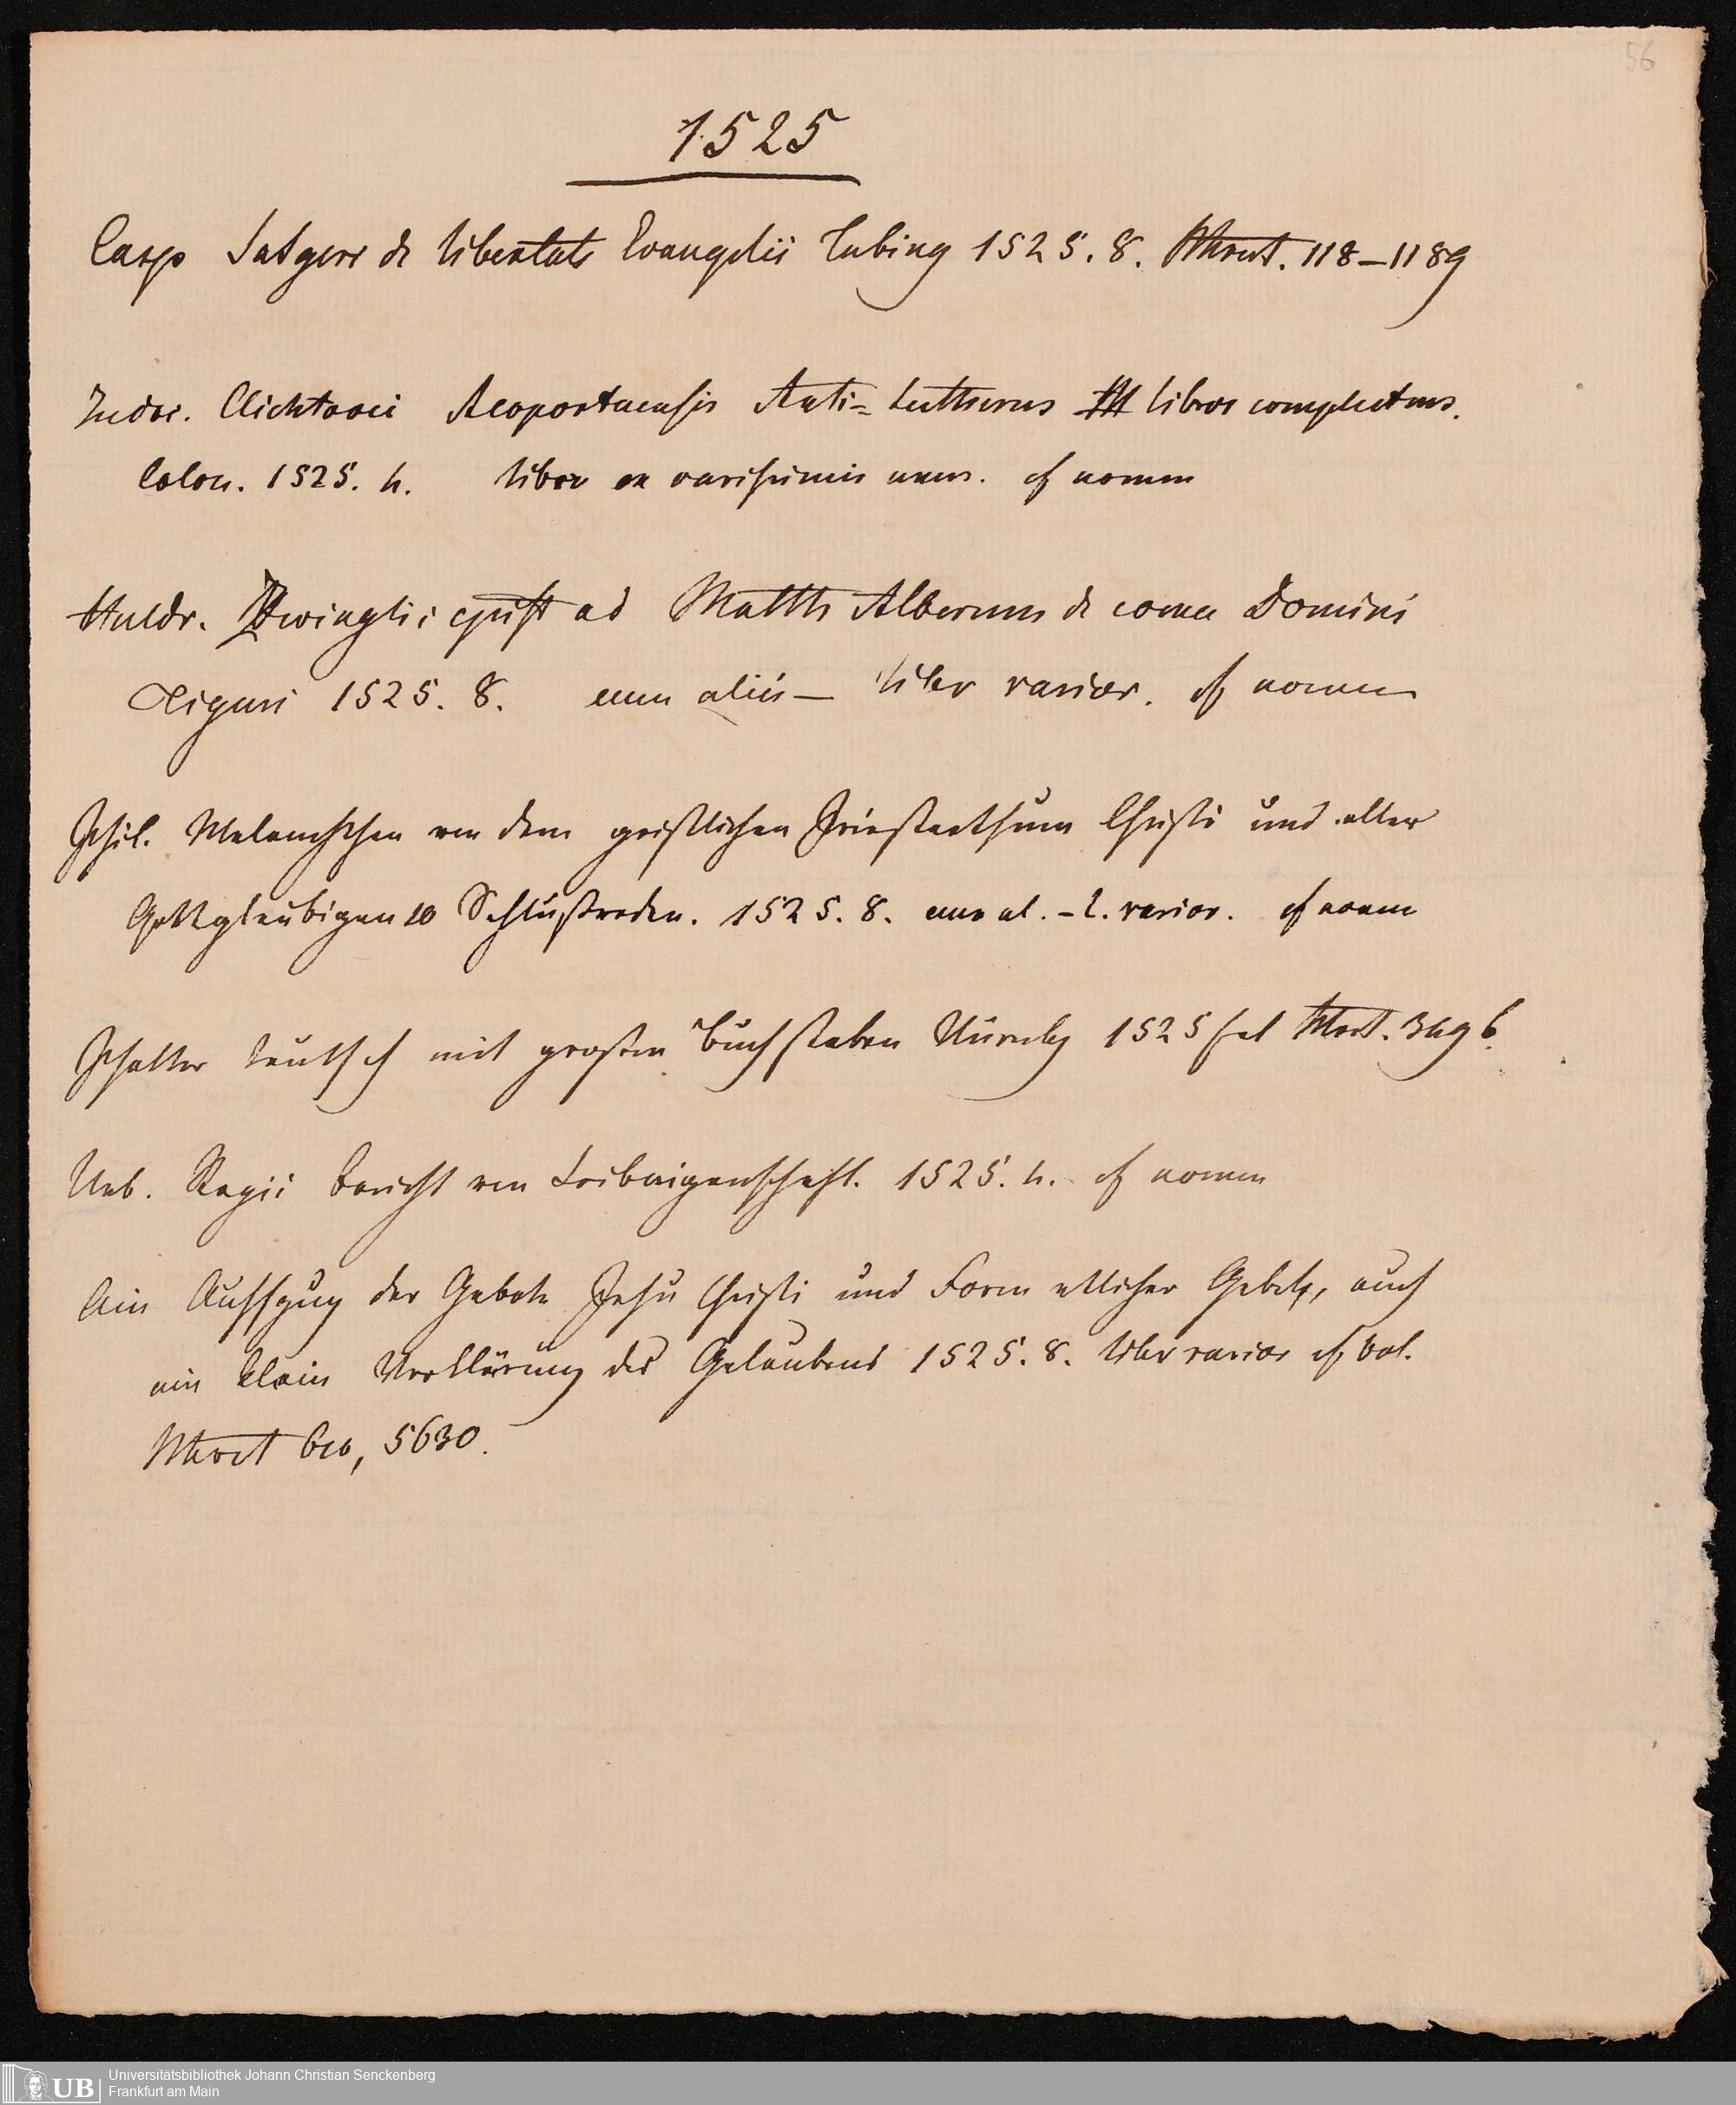 56
1525
Casp Satgeri de libertate Evangelii Tubing 1525. 8. 118–1189
Judoc. Clichtovei Neoportuensis Anti-Lutherus III libros complectens.
Colon. 1525. 4. liber ex rarissimis unus. cf nomen
Huldr. Zwinglii epist ad Matth Alberum de coena Domini
Tiguri 1525. 8. cum aliis – liber rarior. cf nomen
Phil. Melanchthon von dem geistlichen Priesterthum Christi und aller
Gottgläubigen 10 Schlußreden. 1525. 8. cum al. – l. rarior. cf nomen
Psalter teutsch mit großen Buchstaben Nürnbg 1525 3496.
Urb. Regii Bericht von Leibaigenschaft. 1525. 4. cf nomen
Ain Ausszug der Gebote Jesu Christi und Form etlicher Gebete, auch
ein klain Verklärung des Gelaubens 1525. 8. liber rarior cf
5630.
Universitätsbibliothek Johann Christian Senckenberg
Frankfurt am Main
UB